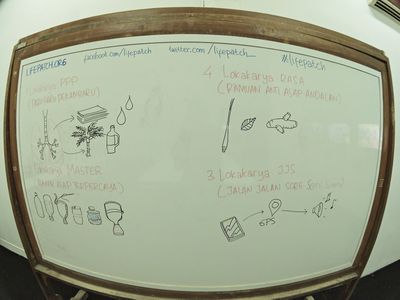 LIFEPATCH.ORG facebook.com/lifepatch twitter.com/lifepatch_ #lifepatch
Lokakarya PPP
Lokakarya MASTER
ASAP TERPERCAYA)
4 Lokakarya RASA
(RAMUAN ANTI ASAP ANDALAN)
3 Lokakarya JJS
(JALAN JALAN SORE
GPS